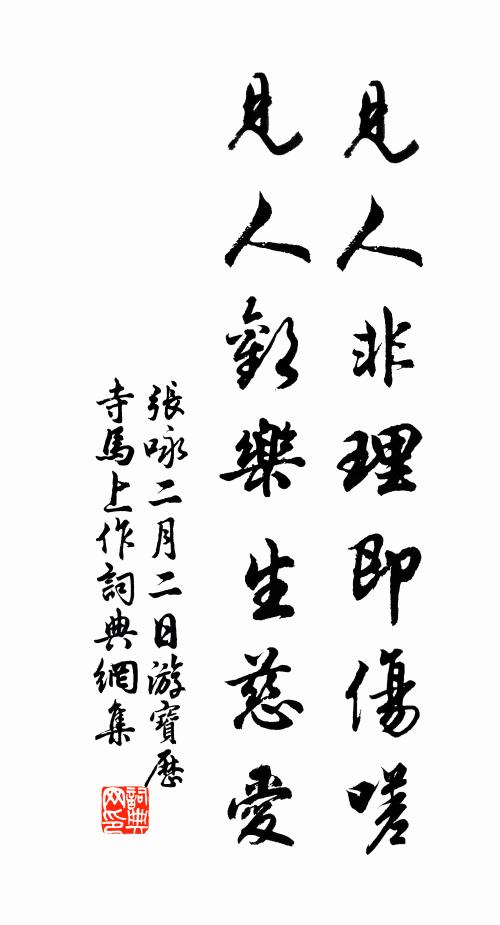 見人非理即傷嗟
見人歡樂生慈愛
張咏二月二日游寶歷
寺馬上作詞典網集
詞典
网印